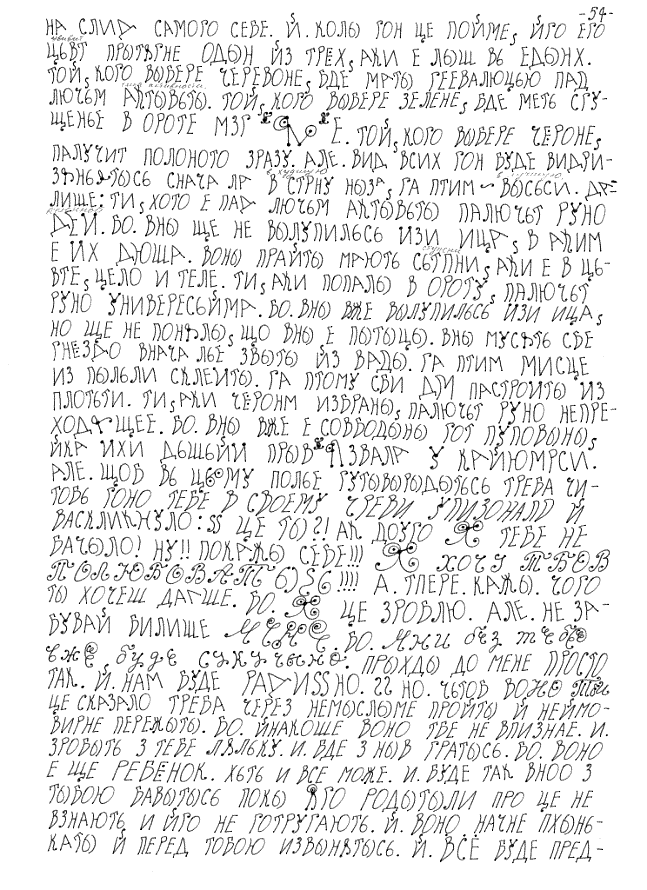 -54-
НА СЛИД САМОГО СЕБЕ. Й. КОЛЫ ГОН ЦЕ ПОЙМЕ, ЙГО ЕГО
ЦЬВТ ПРЫТЯГНЕ ОДЫН ЙЗ ТРЕХ, АКИ Е ЛЫШ ВЬ ЕДЫНХ.
ТОЙ, КОГО ВЫБЕРЕ ЧЕРЕВОНЕ, БДЕ МАТЫ ГЕЕВАЛЮЦЬЮ ПАД
ЛЮЧЬМ АКТЫВЬТЫ. ТОЙ, КОГО ВЫБЕРЕ ЗЕЛЕНЕ, БДЕ МЕТЬ СГУ-
ЩЕНЬЕ В ОРОТЕ МЗГ Е. ТОЙ, КОГО ВЫБЕРЕ ЧЕРОНЕ,
ПАЛУЧИТ ПОЛОНОТО ЗРАЗУ. АЛЕ. ВИД ВСИХ ГОН БУДЕ ВИДРИ-
ЗЬНЯТЫСЬ СНАЧА ЛА В СТРНУ НЫЗА, ГА ПТИМ ВЫСЬСИ. ДАЛЕ
ЛИЩЕ: ТИ, КОГО Е ПАД ЛЮЧЬМ АКТЫВЬТЫ ПАЛЮЧЬТ РУНО
ДЕЙ. БО. ВНЫ ЩЕ НЕ ВЫЛУПИЛЬСЬ ИЗИ ИЦА, В АКИМ
Е ИХ ДЮЩА. ВОНЫ ПРАЙТЫ МАЮТЬ СЬТПНИ, АКИ Е В ЦЬ-
ВТЕ, ЦЕЛО И ТЕЛЕ. ТИ, АКИ ПОПАЛЫ В ОРОТУ, ПАЛЮЧЬТ
РУНО УНИВЕРЕСЬЙМА. БО. ВНЫ ВЖЕ ВЫЛУПИЛЬСЬ ИЗИ ИЦА,
НО ЩЕ НЕ ПОНЯЛЫ, ЩО ВНЫ Е ПЫТЫЦЫ. ВНЫ МУСЯТЬ СБЕ
ГНЕЗДО ВНАЧА ЛЬЕ ЗВЫТЫ ЙЗ ВАДЫ. ГА ПТИМ МИСЦЕ
ИЗ ПЫЛЬЛИ СКЛЕИТЫ. ГА ПТОМУ СВИ ДЛИ ПАСТРОИТЫ ИЗ
ПЛОТЬТИ. ТИ, АКИ ЧЕРОНМ ИЗБРАНЫ, ПАЛЮЧЬТ РУНО НЕПРЕ-
ХОДЯЩЕЕ. БО. ВНЫ ВЖЕ Е СОВБОДЫНЫ ГОТ ПУПОВЫНЫ,
ЙКА ИХИ ДЬШЬЙИ ПРЫВ ЯЗВАЛА У КАЙЮМРСИ.
АЛЕ. ЩОБ ВЬ ЦЬОМУ ПОЛЬЕ ГУТЫВЫРЫДЫТЬСЬ ТРЕВА ЧИ-
ТОВЬ ГОНО ТЕБЕ В СВОЕМУ ЧРЕВИ УПИЗОНАЛО Й
ВАСКЛИКНУЛО: SS ЦЕ ТЫ?! АК ДОУГО Я ТЕБЕ НЕ
БАЧЫЛО! НУ!! ПОКАЖЫ СЕБЕ!!! Я ХОЧУ ТЬБОВ
ПОЛЮБОВАТЬ !!!! А. ТПЕРЕ. КАЖЫ. ЧОГО
ТЫ ХОЧЕШ ДАГШЕ. БО. Я ЦЕ ЗРОБЛЮ. АЛЕ. НЕ ЗА-
БУВАЙ ВИЛИЩЕ МЕНЕ. БО. МНИ без тебе
вже буде скучьно. ПРЫХДЫ ДО МЕНЕ ПРОСТО
ТАК. Й. НАМ БУДЕ РАДИSSНО. ?? НО. ЧЬТОВ ВОНО ТЬИ
ЦЕ СКАЗАЛО ТРЕВА ЧЕРЕЗ НЕМЫСЛЫМЕ ПРОЙТЫ Й НЕЙМО-
ВИРНЕ ПЕРЕЖЫТЫ. БО. ЙНАКОШЕ ВОНО ТБЕ НЕ ВПИЗНАЕ. И.
ЗРОБЫТЬ З ТЕБЕ ЛЯЛЬКУ. И. БДЕ З НЫВ ГРАТЫСЬ. БО. ВОНО
Е ЩЕ РЕБЕНОК. ХЬТЬ И ВСЕ МОЖЕ. И. БУДЕ ТАК ВНОО З
ТЫБОЮ БАВЫТЫСЬ ПОКЫ ЯГО РОДЫТЫЛИ ПРО ЦЕ НЕ
ВЗНАЮТЬ И ЙГО НЕ ГОТРУГАЮТЬ. Й. ВОНО НАЧНЕ ПХЫНЬ-
КАТЫ Й ПЕРЕД ТОБОЮ ИЗВЫНЯТЫСЬ. Й. ВСЁ БУДЕ ПРЕД-